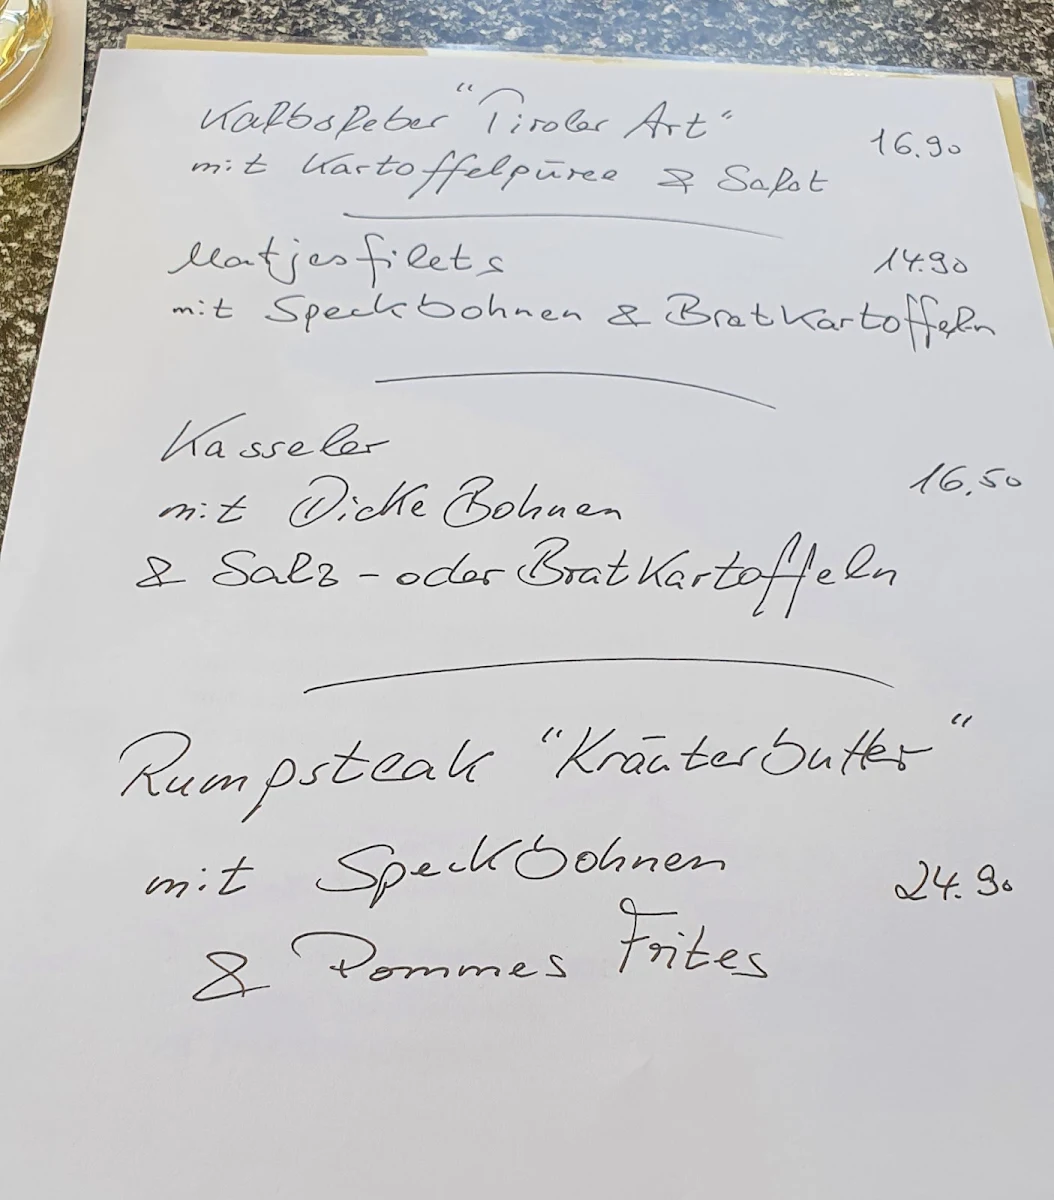 Kalbsleber "Tiroler Art" 16.90
mit Kartoffelpüree & Salat
Matjesfilets 14.90
mit Speckbohnen & Bratkartoffeln
Kasseler
mit Dicke Bohnen 16.50
& Salz - oder Bratkartoffeln
Rumpsteak "Kräuterbutter"
mit Speckbohnen 24.90
& Pommes Frites